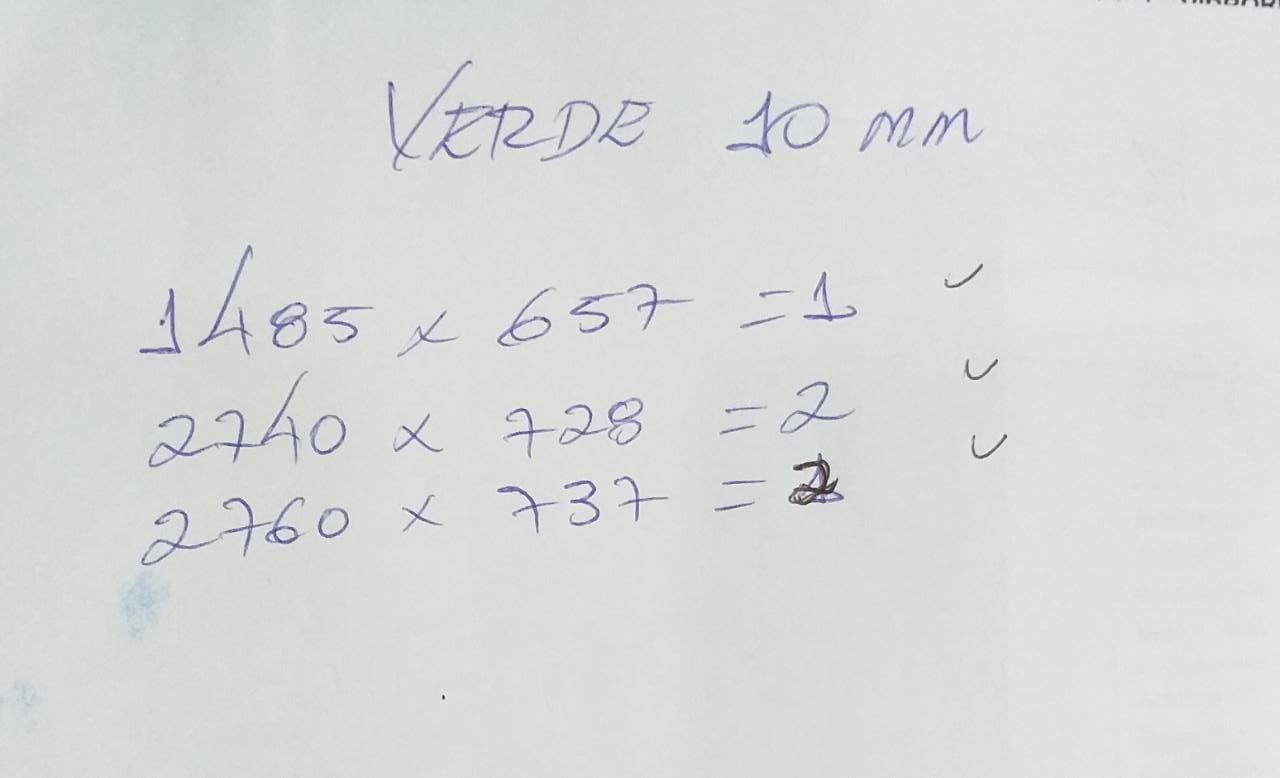 VERDE 10 mm
1485 x 657 = 1 ✓
2740 x 728 = 2 ✓
2760 x 737 = 2 ✓